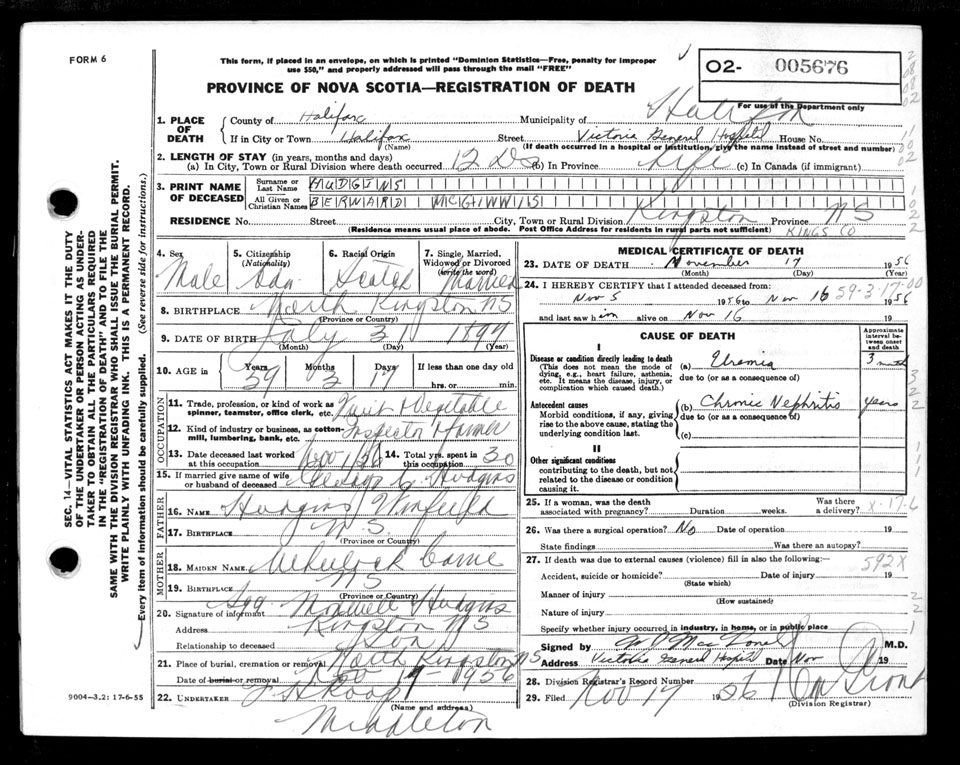 FORM 6
This form, if placed in an envelope, on which is printed "Dominion Statistics—Free, penalty for improper
use $50," and properly addressed will pass through the mail "FREE"
O2- 005676
For use of the Department only
PROVINCE OF NOVA SCOTIA—REGISTRATION OF DEATH
1. PLACE OF DEATH
County of Halifax Municipality of Halifax
If in City or Town Halifax Street Victoria General Hospital House No.
(Name) (If death occurred in a hospital or institution, give the name instead of street and number)
2. LENGTH OF STAY (in years, months and days)
(a) In City, Town or Rural Division where death occurred 12 Ds (b) In Province Life (c) In Canada (if immigrant)
3. PRINT NAME OF DECEASED
Surname or Last Name HUDGINS
All Given or Christian Names BERWARD MCGINNIS
RESIDENCE No. Street City, Town or Rural Division Kingston Province NS
(Residence means usual place of abode. Post Office Address for residents in rural parts not sufficient) KINGS CO
4. Sex Male
5. Citizenship (Nationality) Can
6. Racial Origin Scotch
7. Single, Married, Widowed or Divorced (write the word) Married
8. BIRTHPLACE North Kingston NS
(Province or Country)
9. DATE OF BIRTH July 31 1897
(Month) (Day) (Year)
10. AGE in Years Months Days If less than one day old
59 3 17 hrs. or min.
OCCUPATION
11. Trade, profession, or kind of work as spinner, teamster, office clerk, etc. Fruit & Vegetable
12. Kind of industry or business, as cotton-mill, lumbering, bank, etc. Inspector Farmer
13. Date deceased last worked at this occupation Nov 1/56
14. Total yrs. spent in this occupation 30
15. If married give name of wife or husband of deceased Hudgins
FATHER
16. NAME Hudgins Winfield
17. BIRTHPLACE N.S.
(Province or Country)
MOTHER
18. MAIDEN NAME Wheelock
19. BIRTHPLACE NS
(Province or Country)
20. Signature of informant Sgd. Maxwell Hudgins
Address Kingston NS
Relationship to deceased Son
21. Place of burial, cremation or removal North Kingston NS
Date of burial or removal Nov 19-1956
22. UNDERTAKER Roop
(Name and address)
Middleton
9004—3,2: 17-6-55
SEC. 14—VITAL STATISTICS ACT MAKES IT THE DUTY
OF THE UNDERTAKER OR PERSON ACTING AS UNDER-
TAKER TO OBTAIN ALL THE PARTICULARS REQUIRED
IN THE "REGISTRATION OF DEATH" AND TO FILE THE
SAME WITH THE DIVISION REGISTRAR WHO SHALL ISSUE THE BURIAL PERMIT.
WRITE PLAINLY WITH UNFADING INK. THIS IS A PERMANENT RECORD.
Every item of information should be carefully supplied. (See reverse side for instructions.)
MEDICAL CERTIFICATE OF DEATH
23. DATE OF DEATH November 17 1956
(Month) (Day) (Year)
24. I HEREBY CERTIFY that I attended deceased from:
Nov 5 1956 to Nov 16 1956
59-3-17-00
and last saw him alive on Nov 16 19
CAUSE OF DEATH
Approximate interval between onset and death
I
Disease or condition directly leading to death
(This does not mean the mode of dying, e.g., heart failure, asthenia, etc. It means the disease, injury, or complication which caused death.)
(a) Uremia 3 month
due to (or as a consequence of)
Antecedent causes
Morbid conditions, if any, giving rise to the above cause, stating the underlying condition last.
(b) Chronic Nephritis years
due to (or as a consequence of)
(c)
II
Other significant conditions
contributing to the death, but not related to the disease or condition causing it.
25. If a woman, was the death associated with pregnancy? Duration weeks. Was there a delivery?
X-17-6
26. Was there a surgical operation? No Date of operation 19
State findings Was there an autopsy?
27. If death was due to external causes (violence) fill in also the following:—
592X
Accident, suicide or homicide? Date of injury 19
(State which)
Manner of injury
(How sustained)
Nature of injury
Specify whether injury occurred in industry, in home, or in public place
Signed by M.D.
Address Victoria General Hospital Date Nov 19
28. Division Registrar's Record Number
29. Filed Nov 19 1956
(Division Registrar)